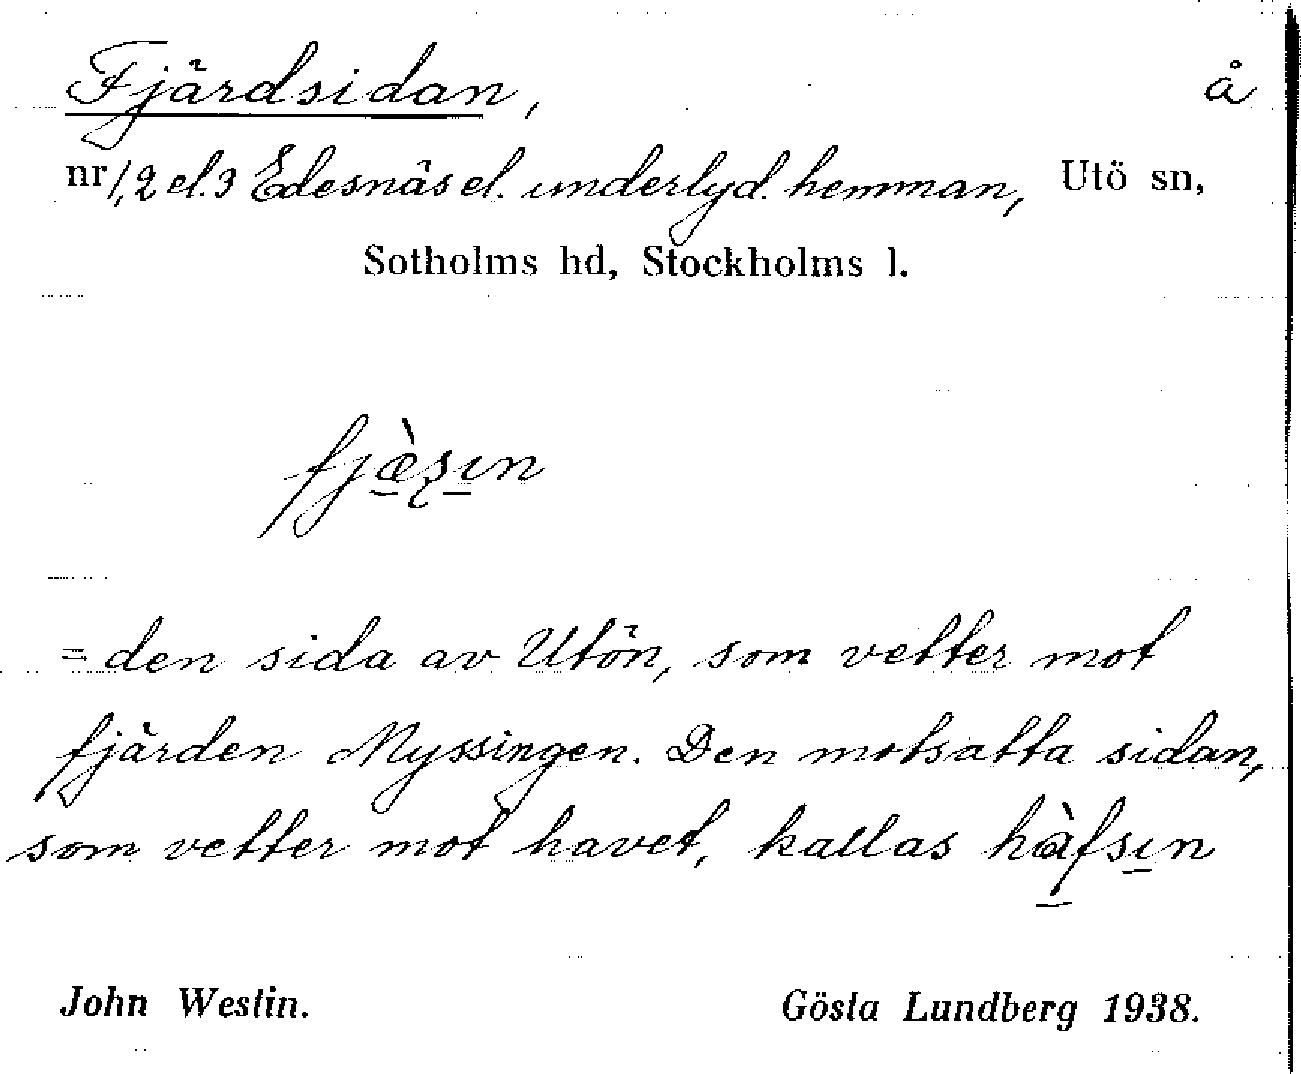 Fjärdsidan, å
nr 1, 2 el. 3 Edesnäs el. underlyd. hemman, Utö sn,
Sotholms hd, Stockholms l.
fjæ̀ʂın
= den sida av Utön, som vetter mot
fjärden Myssingen. Den motsatta sidan,
som vetter mot havet, kallas hàfsın
John Westin. Gösta Lundberg 1938.